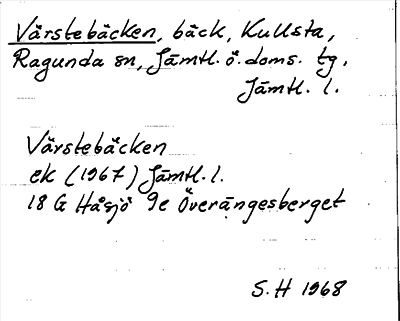 Värstebäcken, bäck, Kullsta,
Ragunda sn, Jämtl. ö. doms. tg,
Jämtl. l.
Värstebäcken
ek (1967) Jämtl. l.
18 G Håsjö 9e Överängesberget
S.H 1968